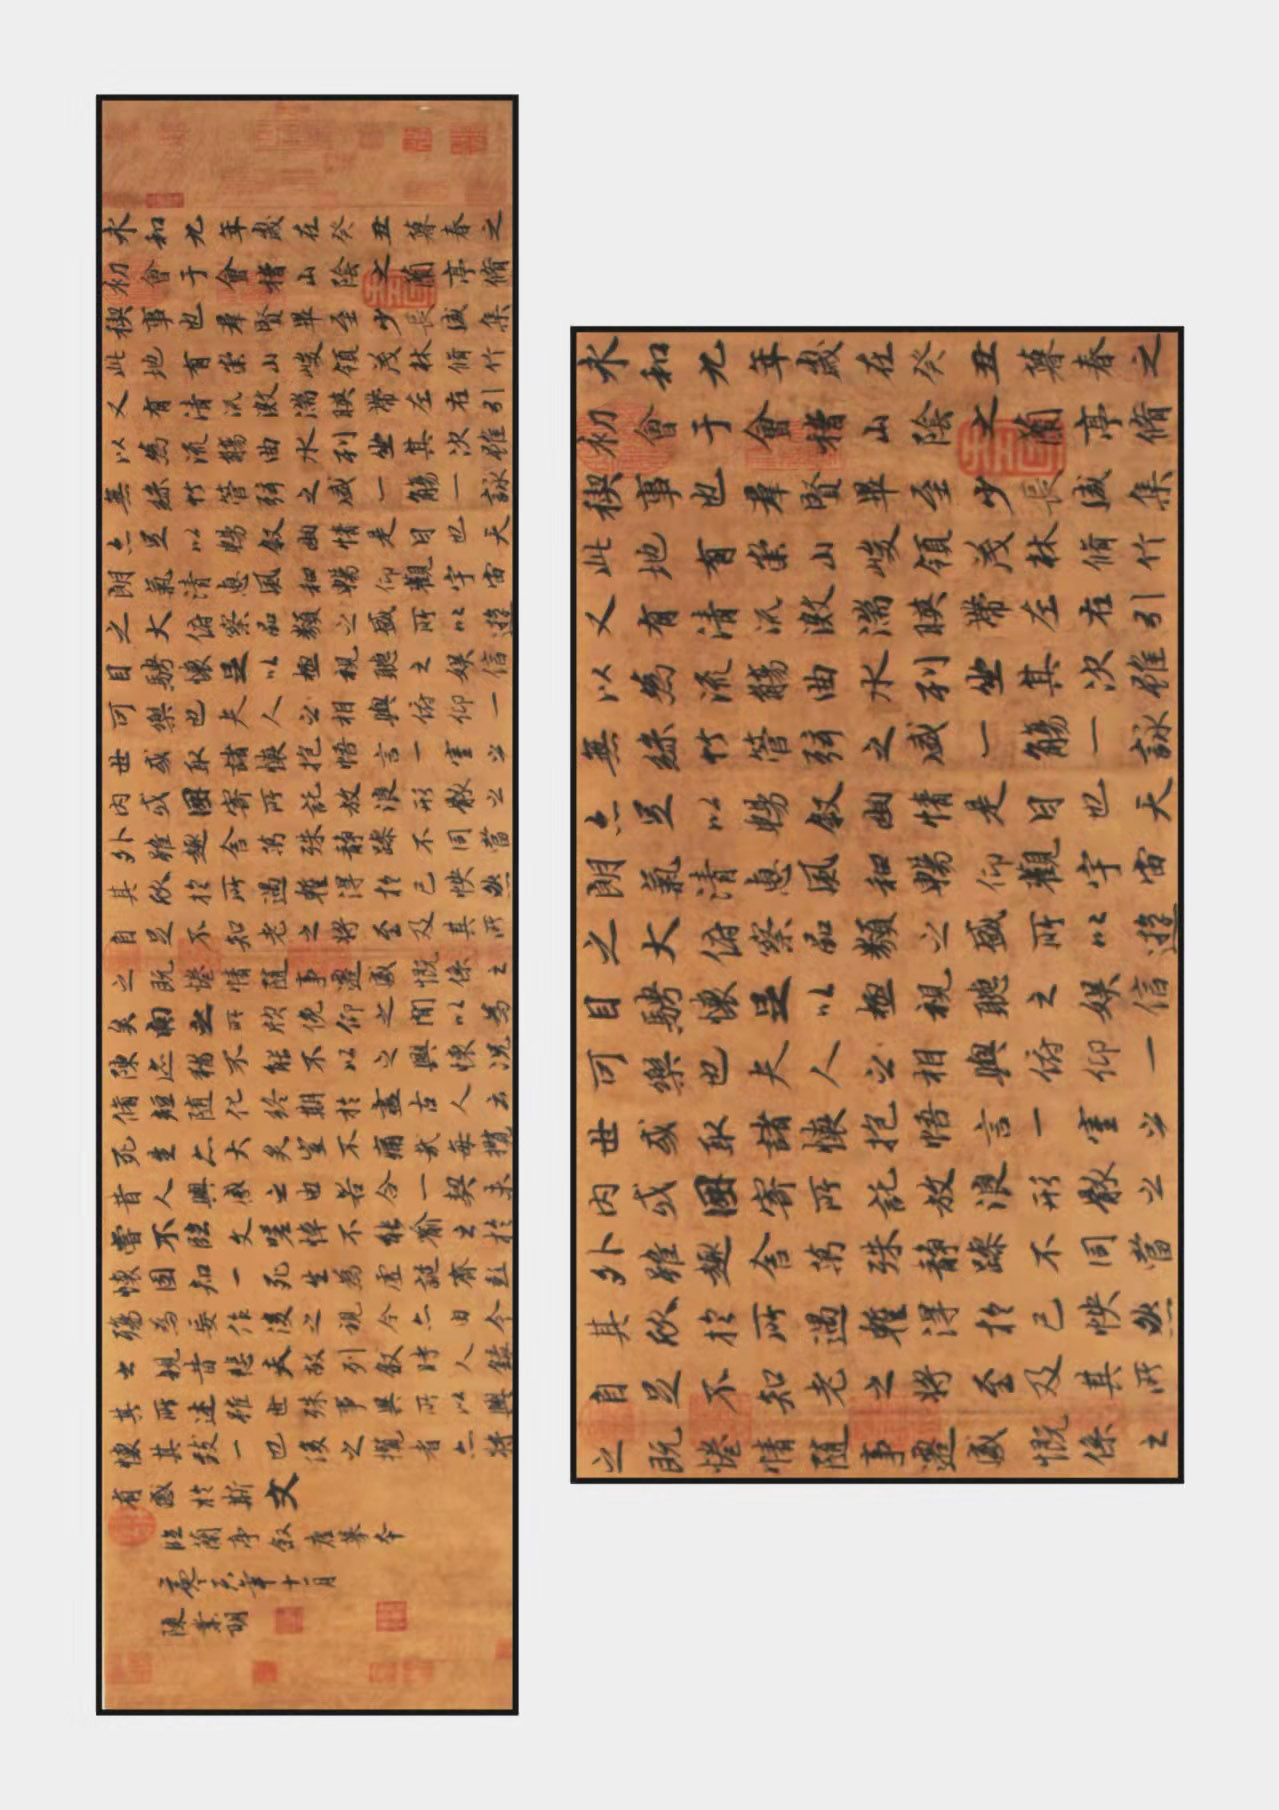 永和九年歲在癸丑暮春之
初會于會稽山陰之蘭亭脩
禊事也羣賢畢至少長咸集
此地有崇山峻領茂林脩竹
又有清流激湍暎帶左右引
以為流觴曲水列坐其次雖
無絲竹管弦之盛一觴一詠
亦足以暢叙幽情是日也天
朗氣清惠風和暢仰觀宇宙
之大俯察品類之盛所以遊
目騁懷足以極視聽之娛信
可樂也夫人之相與俯仰一
世或取諸懷抱悟言一室之
內或因寄所託放浪形骸之
外雖趣舍萬殊靜躁不同當
其欣於所遇暫得於己怏然
自足不知老之將至及其所
之既惓情隨事遷感慨係之
矣向之所欣俛仰之閒以為
陳迹猶不能不以之興懷況
脩短隨化終期於盡古人云
死生亦大矣豈不痛哉每攬
昔人興感之由若合一契未
嘗不臨文嗟悼不能喻之於
懷固知一死生為虛誕齊彭
殤為妄作後之視今亦由今
之視昔悲夫故列叙時人錄
其所述雖世殊事異所以興
懷其致一也後之攬者亦將
有感於斯文
臨蘭亭叙唐摹本
年十二月
陳業明
永和九年歲在癸丑暮春之
初會于會稽山陰之蘭亭脩
禊事也羣賢畢至少長咸集
此地有崇山峻領茂林脩竹
又有清流激湍暎帶左右引
以為流觴曲水列坐其次雖
無絲竹管弦之盛一觴一詠
亦足以暢叙幽情是日也天
朗氣清惠風和暢仰觀宇宙
之大俯察品類之盛所以遊
目騁懷足以極視聽之娛信
可樂也夫人之相與俯仰一
世或取諸懷抱悟言一室之
內或因寄所託放浪形骸之
外雖趣舍萬殊靜躁不同當
其欣於所遇暫得於己怏然
自足不知老之將至及其所
之既惓情隨事遷感慨係之